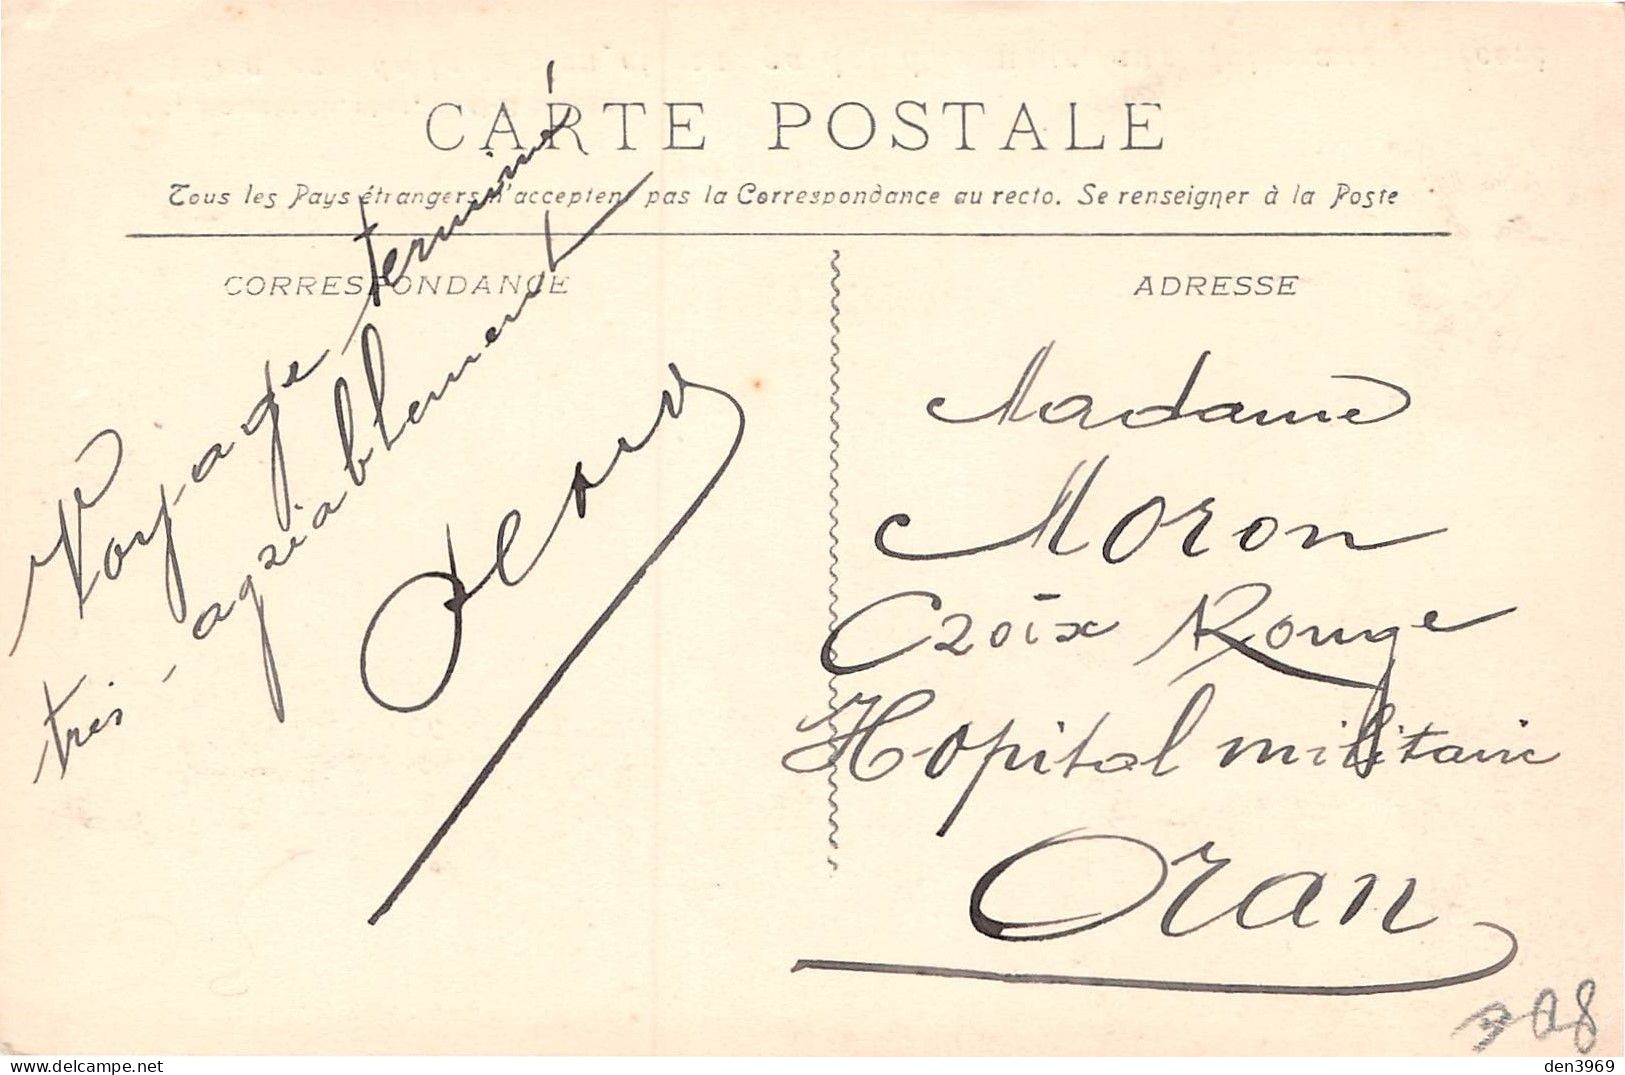 CARTE POSTALE
Tous les Pays étrangers n'acceptent pas la Correspondance au recto. Se renseigner à la Poste
CORRESPONDANCE
ADRESSE
Voyage terminé
très-agréablement
Madame
Moron
Croix Rouge
Hopital militaire
Oran
den3969